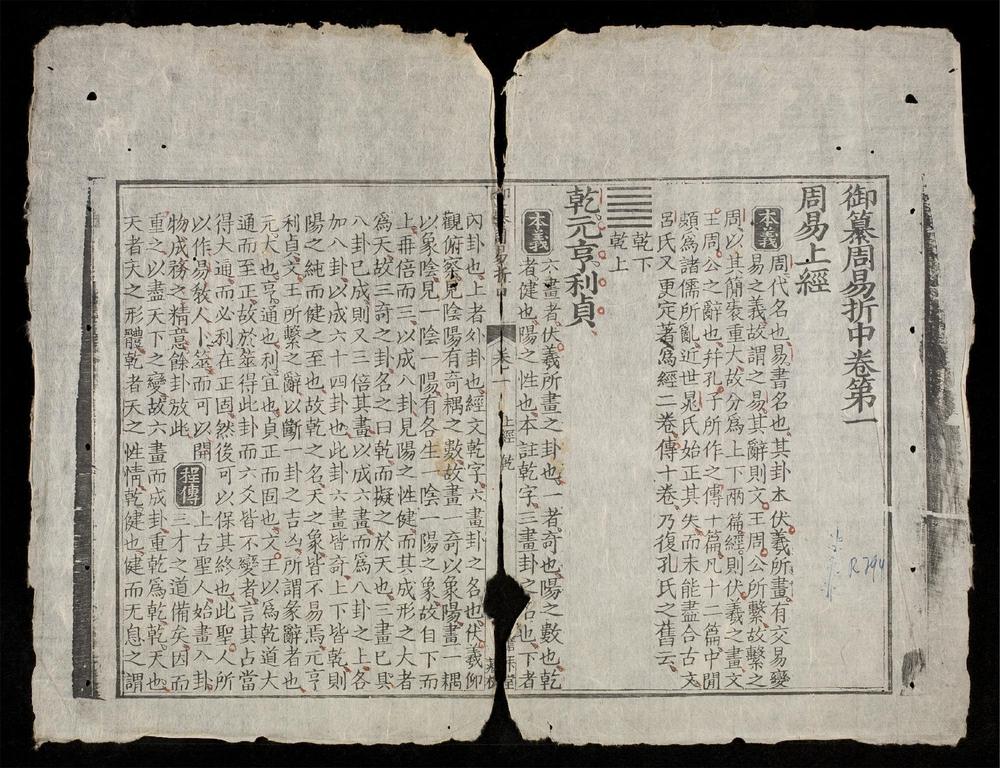 御纂周易折中卷第一
周易上經
本義
周代名也易書名也其卦本伏羲所畫有交易變
易之義故謂之易其辭則文王周公所繫故繫之
周以其簡袠重大故分爲上下兩篇經則伏羲之畫文
王周公之辭也幷孔子所作之傳十篇凡十二篇中間
頗爲諸儒所亂近世晁氏始正其失而未能盡合古文
呂氏又更定著爲經二卷傳十卷乃復孔氏之舊云
乾下
乾上
乾元亨利貞
本義
六畫者伏羲所畫之卦也一者奇也陽之數也乾
者健也陽之性也本註乾字三畫卦之名也下者
卷一
上經 乾
內卦也上者外卦也經文乾字六畫卦之名也伏羲仰
觀俯察見陰陽有奇耦之數故畫一奇以象陽畫一耦
以象陰見一陰一陽有各生一陰一陽之象故自下而
上再倍而三以成八卦見陽之性健而其成形之大者
爲天故三奇之卦名之曰乾而擬之於天也三畫已具
八卦已成則又三倍其畫以成六畫而爲八卦之上各
加八卦以成六十四卦也此卦六畫皆奇上下皆乾則
陽之純而健之至也故乾之名天之象皆不易焉元亨
利貞文王所繫之辭以斷一卦之吉凶所謂彖辭者也
元大也亨通也利宜也貞正而固也文王以爲乾道大
通而至正故於筮得此卦而六爻皆不變者言其占當
得大通而必利在正固然後可以保其終也此聖人所
以作易敎人卜筮而可以開
物成務之精意餘卦放此
程傳
上古聖人始畫八卦
三才之道備矣因而
重之以盡天下之變故六畫而成卦重乾爲乾乾天也
天者天之形體乾者天之性情乾健也健而無息之謂
R794